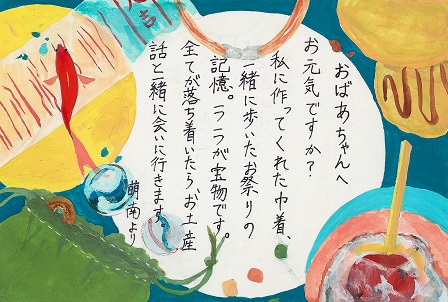 おばあちゃんへ
お元気ですか？
私に作ってくれた巾着、
一緒に歩いたお祭りの
記憶。ニつが宝物です。
全てが落ち着いたら、お土産
話と一緒に会いに行きます
萌南より